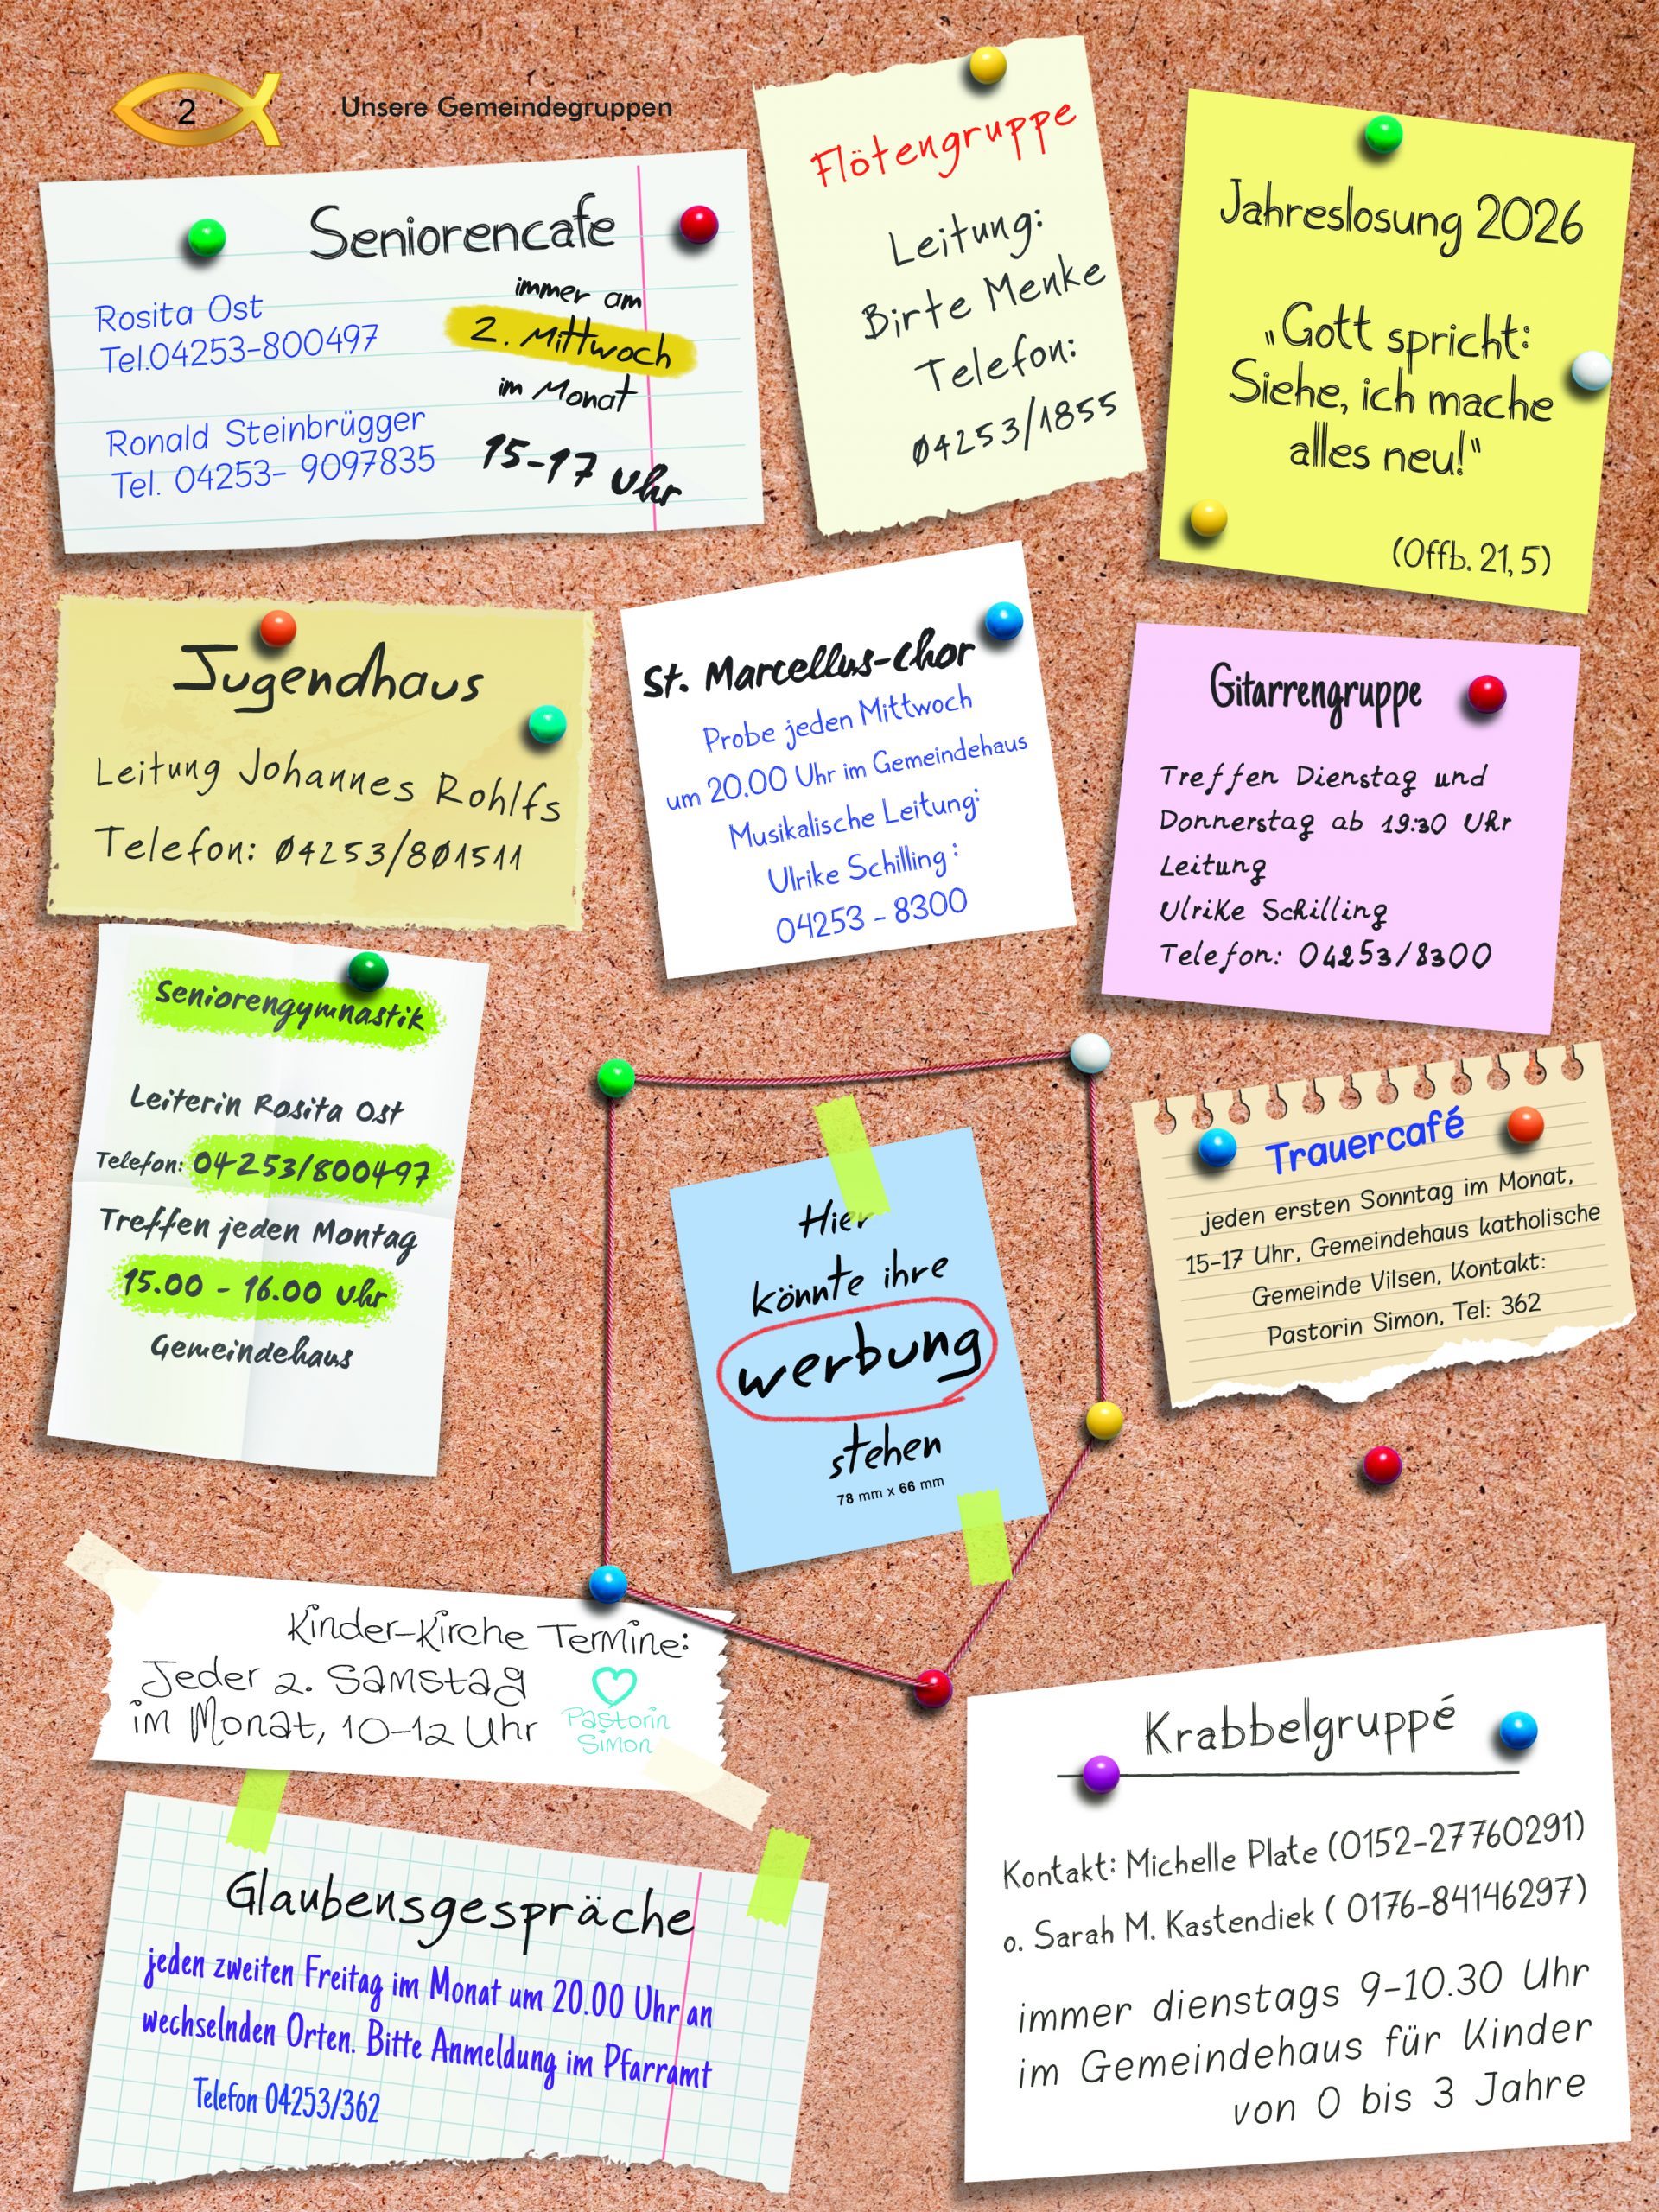 2
Unsere Gemeindegruppen
Seniorencafe
Rosita Ost
Tel.04253-800497
Ronald Steinbrügger
Tel. 04253- 9097835
immer am
2. Mittwoch
im Monat
15-17 Uhr
Flötengruppe
Leitung:
Birte Menke
Telefon:
04253/1855
Jahreslosung 2026
„Gott spricht:
Siehe, ich mache
alles neu!"
(Offb. 21, 5)
Jugendhaus
Leitung Johannes Rohlfs
Telefon: 04253/801511
St. Marcellus-Chor
Probe jeden Mittwoch
um 20.00 Uhr im Gemeindehaus
Musikalische Leitung:
Ulrike Schilling :
04253 - 8300
Gitarrengruppe
Treffen Dienstag und
Donnerstag ab 19:30 Uhr
Leitung
Ulrike Schilling
Telefon: 04253/8300
Seniorengymnastik
Leiterin Rosita Ost
Telefon: 04253/800497
Treffen jeden Montag
15.00 - 16.00 Uhr
Gemeindehaus
Hier
könnte ihre
werbung
stehen
78 mm x 66 mm
Trauercafé
jeden ersten Sonntag im Monat,
15-17 Uhr, Gemeindehaus katholische
Gemeinde Vilsen, Kontakt:
Pastorin Simon, Tel: 362
Kinder-Kirche Termine:
Jeder 2. Samstag
im Monat, 10-12 Uhr
Pastorin
Simon
Glaubensgespräche
jeden zweiten Freitag im Monat um 20.00 Uhr an
wechselnden Orten. Bitte Anmeldung im Pfarramt
Telefon 04253/362
Krabbelgruppé
Kontakt: Michelle Plate (0152-27760291)
o. Sarah M. Kastendiek ( 0176-84146297)
immer dienstags 9-10.30 Uhr
im Gemeindehaus für Kinder
von 0 bis 3 Jahre